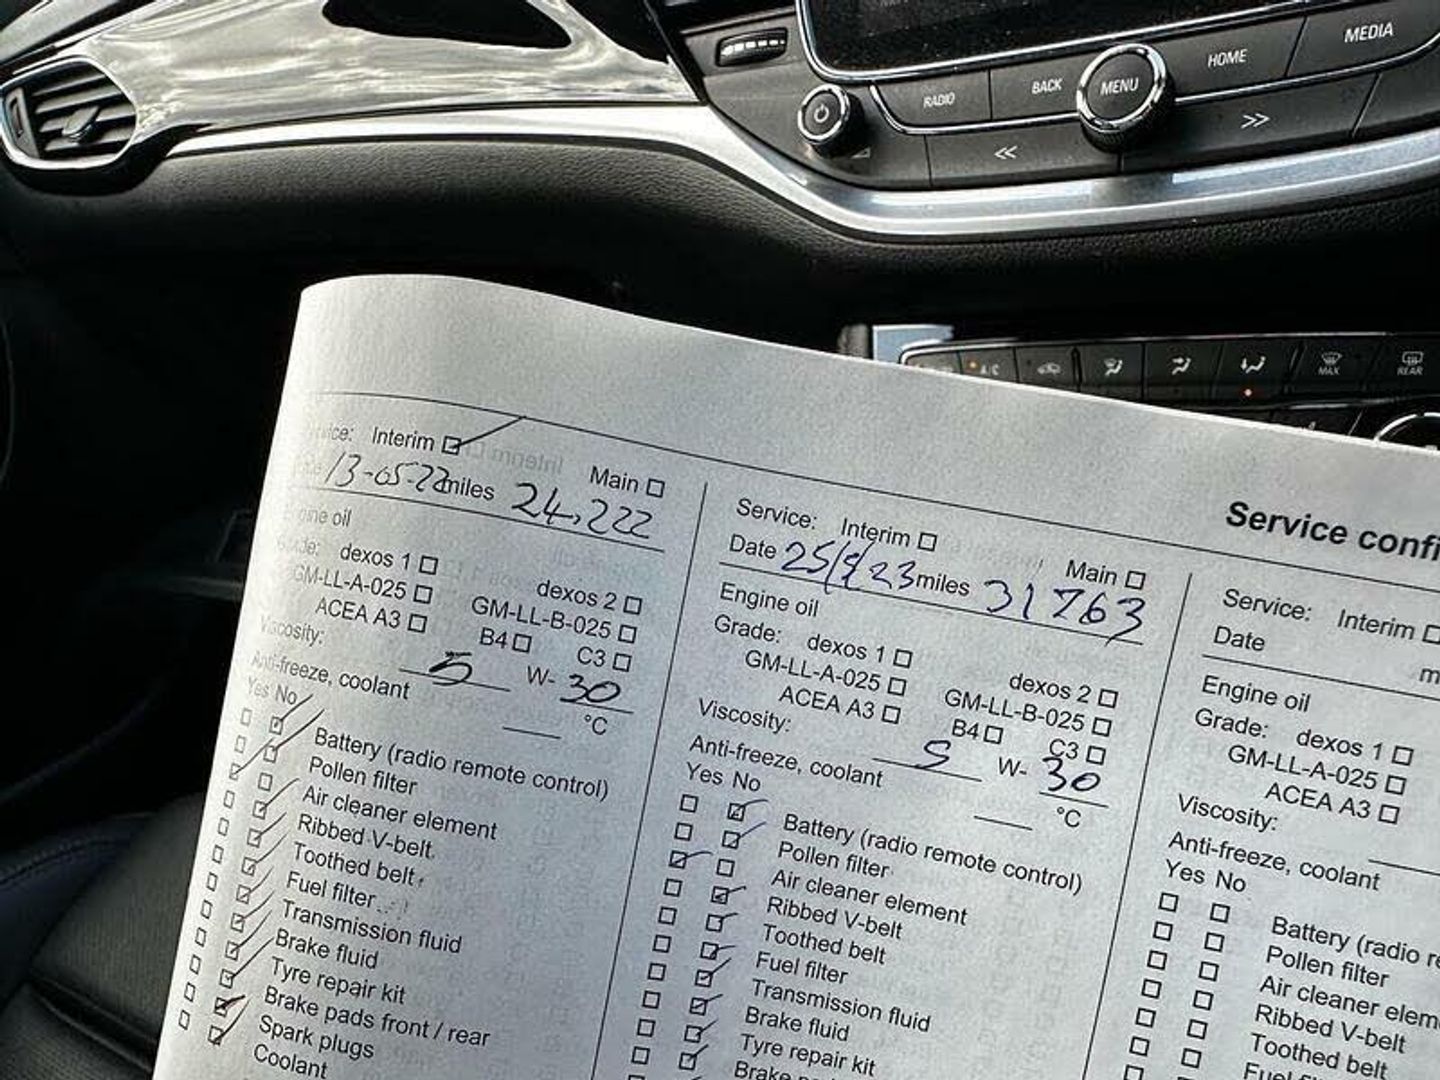 RADIO
BACK
MENU
HOME
MEDIA
<<
>>
A/C
MAX
REAR
Service confi
Interim
Main
13-05-22 miles 24,222
oil
dexos 1
dexos 2
GM-LL-A-025
GM-LL-B-025
ACEA A3
B4
C3
Viscosity:
5 W- 30
Anti-freeze, coolant
°C
Yes No
Battery (radio remote control)
Pollen filter
Air cleaner element
Ribbed V-belt
Toothed belt
Fuel filter
Transmission fluid
Brake fluid
Tyre repair kit
Brake pads front / rear
Spark plugs
Coolant
Service: Interim
Main
Date 25/5/23 miles 31763
Engine oil
Grade: dexos 1
dexos 2
GM-LL-A-025
GM-LL-B-025
ACEA A3
B4
C3
Viscosity:
5 W- 30
Anti-freeze, coolant
°C
Yes No
Battery (radio remote control)
Pollen filter
Air cleaner element
Ribbed V-belt
Toothed belt
Fuel filter
Transmission fluid
Brake fluid
Tyre repair kit
Brake
Service: Interim
Date
Engine oil
Grade: dexos 1
GM-LL-A-025
ACEA A3
Viscosity:
Anti-freeze, coolant
Yes No
Battery (radio
Pollen filter
Air cleaner elem
Ribbed V-belt
Toothed belt
Fuel